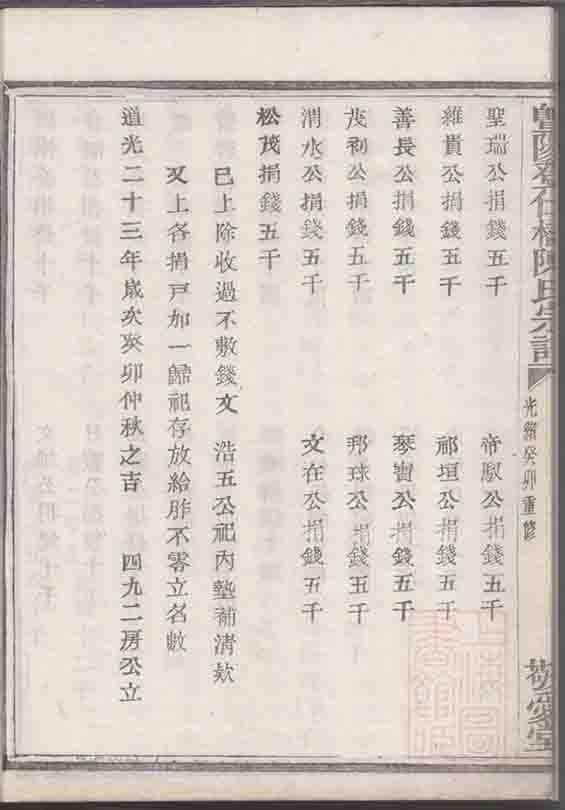 聖瑞公捐錢五千　帝馭公捐錢五千
維貴公捐錢五千　祁垣公捐錢五千
善長公捐錢五千　琴寶公捐錢五千
茂利公捐錢五千　邦球公捐錢五千
渭水公捐錢五千　文在公捐錢五千
松茂捐錢五千
已上除收過不敷錢文　浩五公祀內墊補清欵
又上各捐戸加一歸祀存放給胙不零立名數
道光二十三年歲次癸卯仲秋之吉　四九二房公立
光緒癸卯重修
敬愛堂